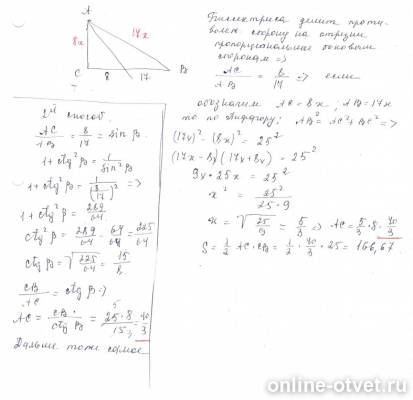 A
8x
17x
C
8
17
B
Биссектриса делит проти-
волеж сторону на отрезки
пропорциональные боковым
сторонам =>
AC/AB = 8/17 => если
обозначим AC=8x; AB=17x
то по Пифагору: AB²=AC²+BC² =>
(17x)² - (8x)² = 25²
(17x - 8x)(17x+8x) = 25²
9x · 25x = 25²
x² = 25²/(25·9)
x = √(25/9) = 5/3 => AC = 5/3 · 8 = 40/3
S = 1/2 AC · CB = 1/2 · 40/3 · 25 = 166,67
2й способ.
AC/AB = 8/17 = sin β
1+ctg²β = 1/sin²β
1+ctg²β = 1/(8/17)² =>
1+ctg²β = 289/64
ctg²β = 289/64 - 64/64 = 225/64
ctg β = √(225/64) = 15/8
CB/AC = ctg β =>
AC = CB/ctg β = 25·8/15 = 40/3
Дальше тоже самое
online-otvet.ru